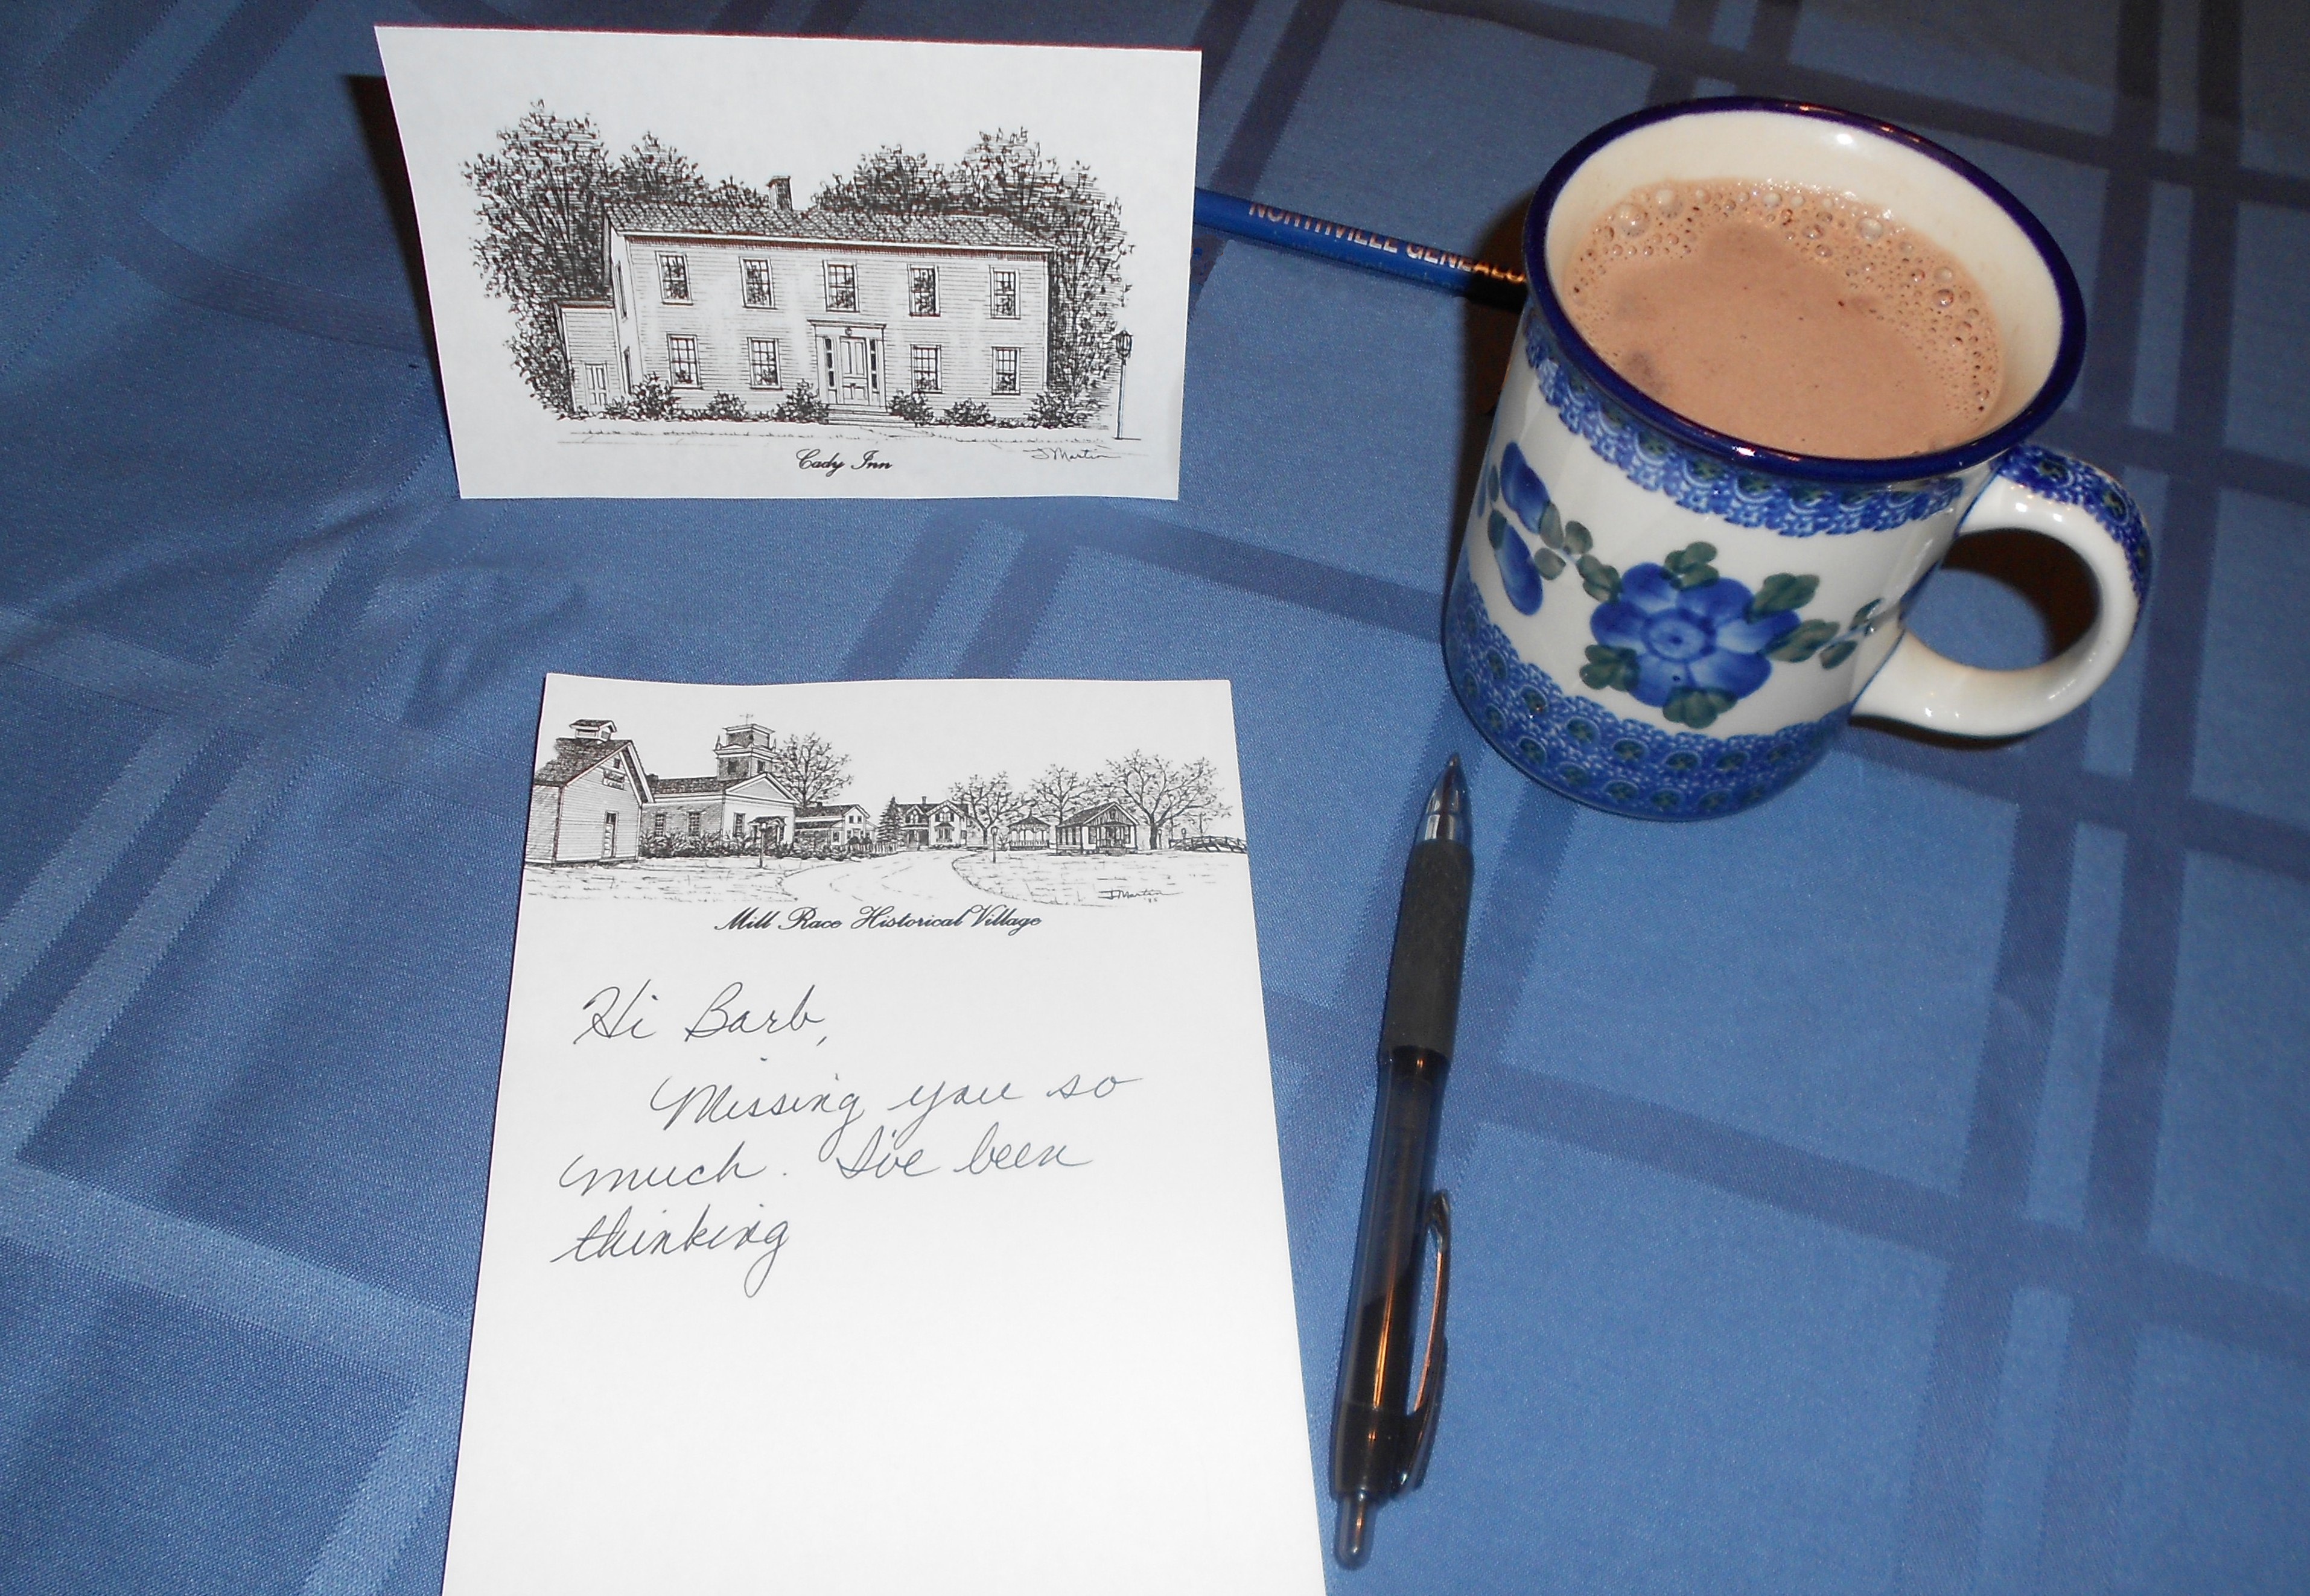 Cady Inn
J Martin
NORTHVILLE GENEALO
Mill Race Historical Village
J Martin
Hi Barb,
Missing you so
much. I've been
thinking